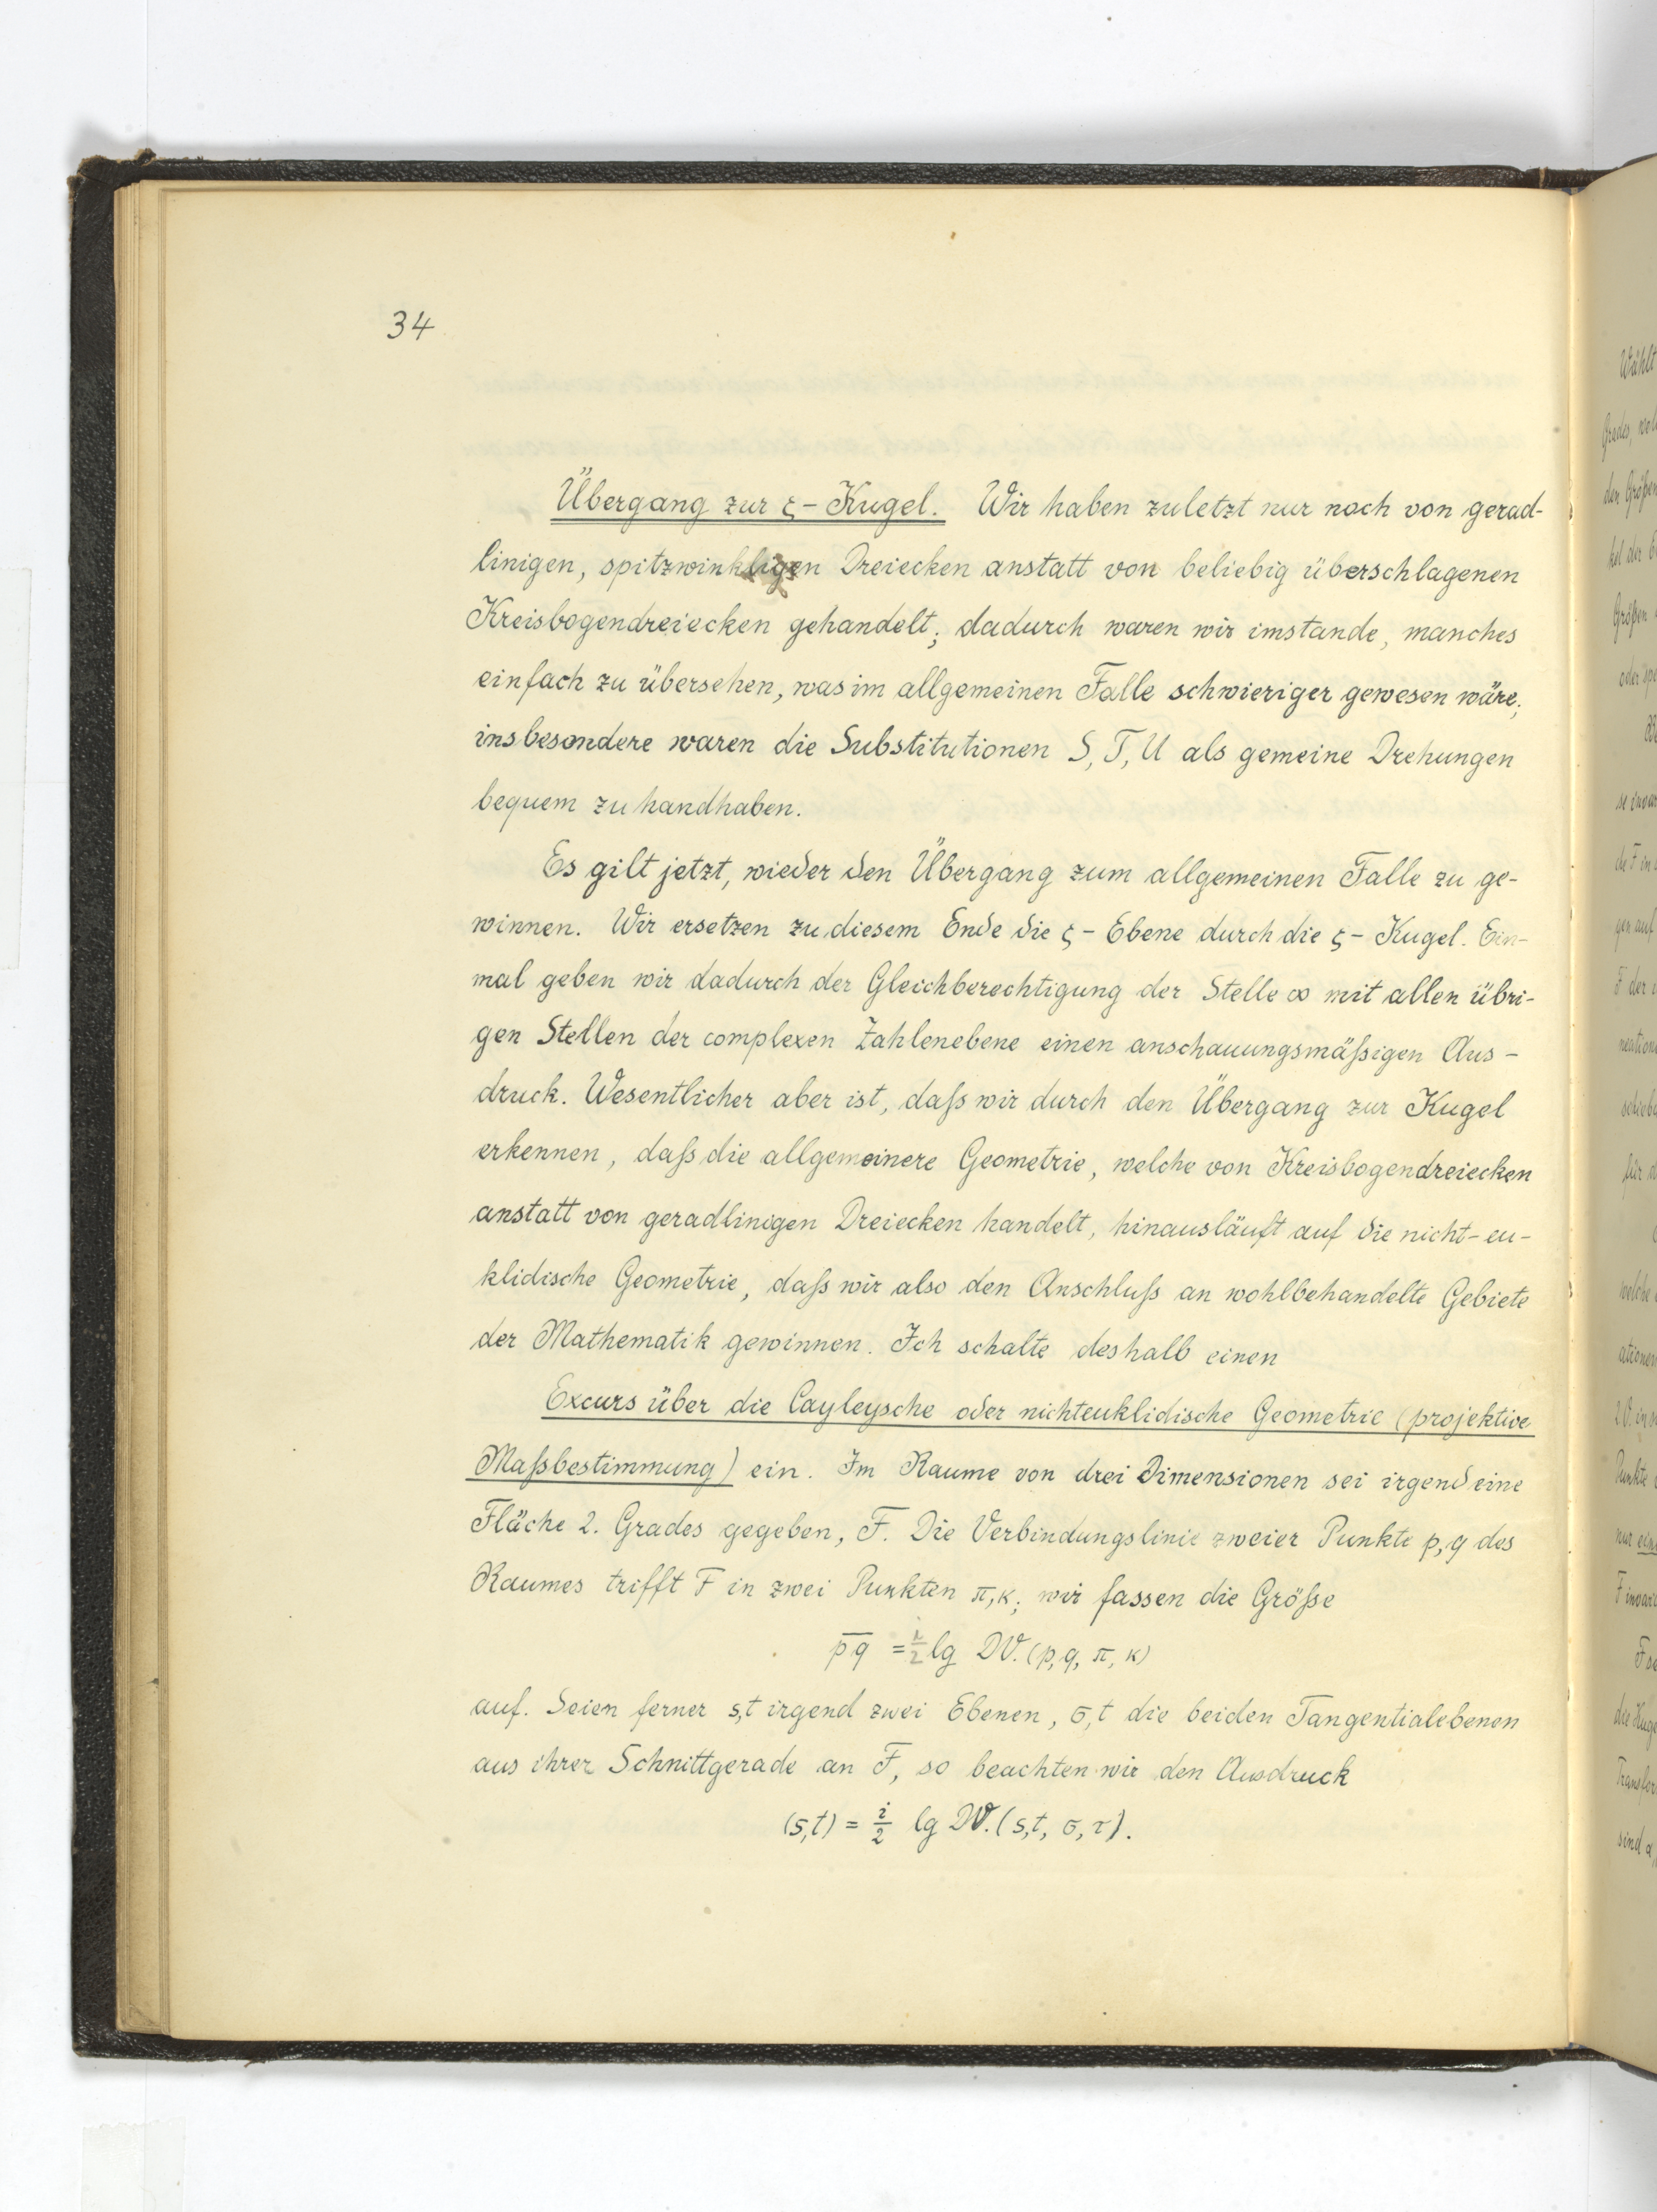 34
Übergang zur ζ-Kugel. Wir haben zuletzt nur noch von gerad-
linigen, spitzwinkligen Dreiecken anstatt von beliebig überschlagenen
Kreisbogendreiecken gehandelt; dadurch waren wir imstande, manches
einfach zu übersehen, was im allgemeinen Falle schwieriger gewesen wäre;
insbesondere waren die Substitutionen S, T, U als gemeine Drehungen
bequem zu handhaben.
Es gilt jetzt, wieder den Übergang zum allgemeinen Falle zu ge-
winnen. Wir ersetzen zu diesem Ende die ζ-Ebene durch die ζ-Kugel. Ein-
mal geben wir dadurch der Gleichberechtigung der Stelle ∞ mit allen übri-
gen Stellen der complexen Zahlenebene einen anschauungsmäßigen Aus-
druck. Wesentlicher aber ist, daß wir durch den Übergang zur Kugel
erkennen, daß die allgemeinere Geometrie, welche von Kreisbogendreiecken
anstatt von geradlinigen Dreiecken handelt, hinausläuft auf die nicht-eu-
klidische Geometrie, daß wir also den Anschluß an wohlbehandelte Gebiete
der Mathematik gewinnen. Ich schalte deshalb einen
Excurs über die Cayleysche oder nichteuklidische Geometrie (projektive
Maßbestimmung) ein. Im Raume von drei Dimensionen sei irgend eine
Fläche 2. Grades gegeben, F. Die Verbindungslinie zweier Punkte p, q des
Raumes trifft F in zwei Punkten π, κ; wir fassen die Größe
p̅q̅ = lg DV. (p, q, π, κ)
auf. Seien ferner s, t irgend zwei Ebenen, σ, t die beiden Tangentialebenen
aus ihrer Schnittgerade an F, so beachten wir den Ausdruck
(s, t) = i/2 lg DV. (s, t, σ, τ).